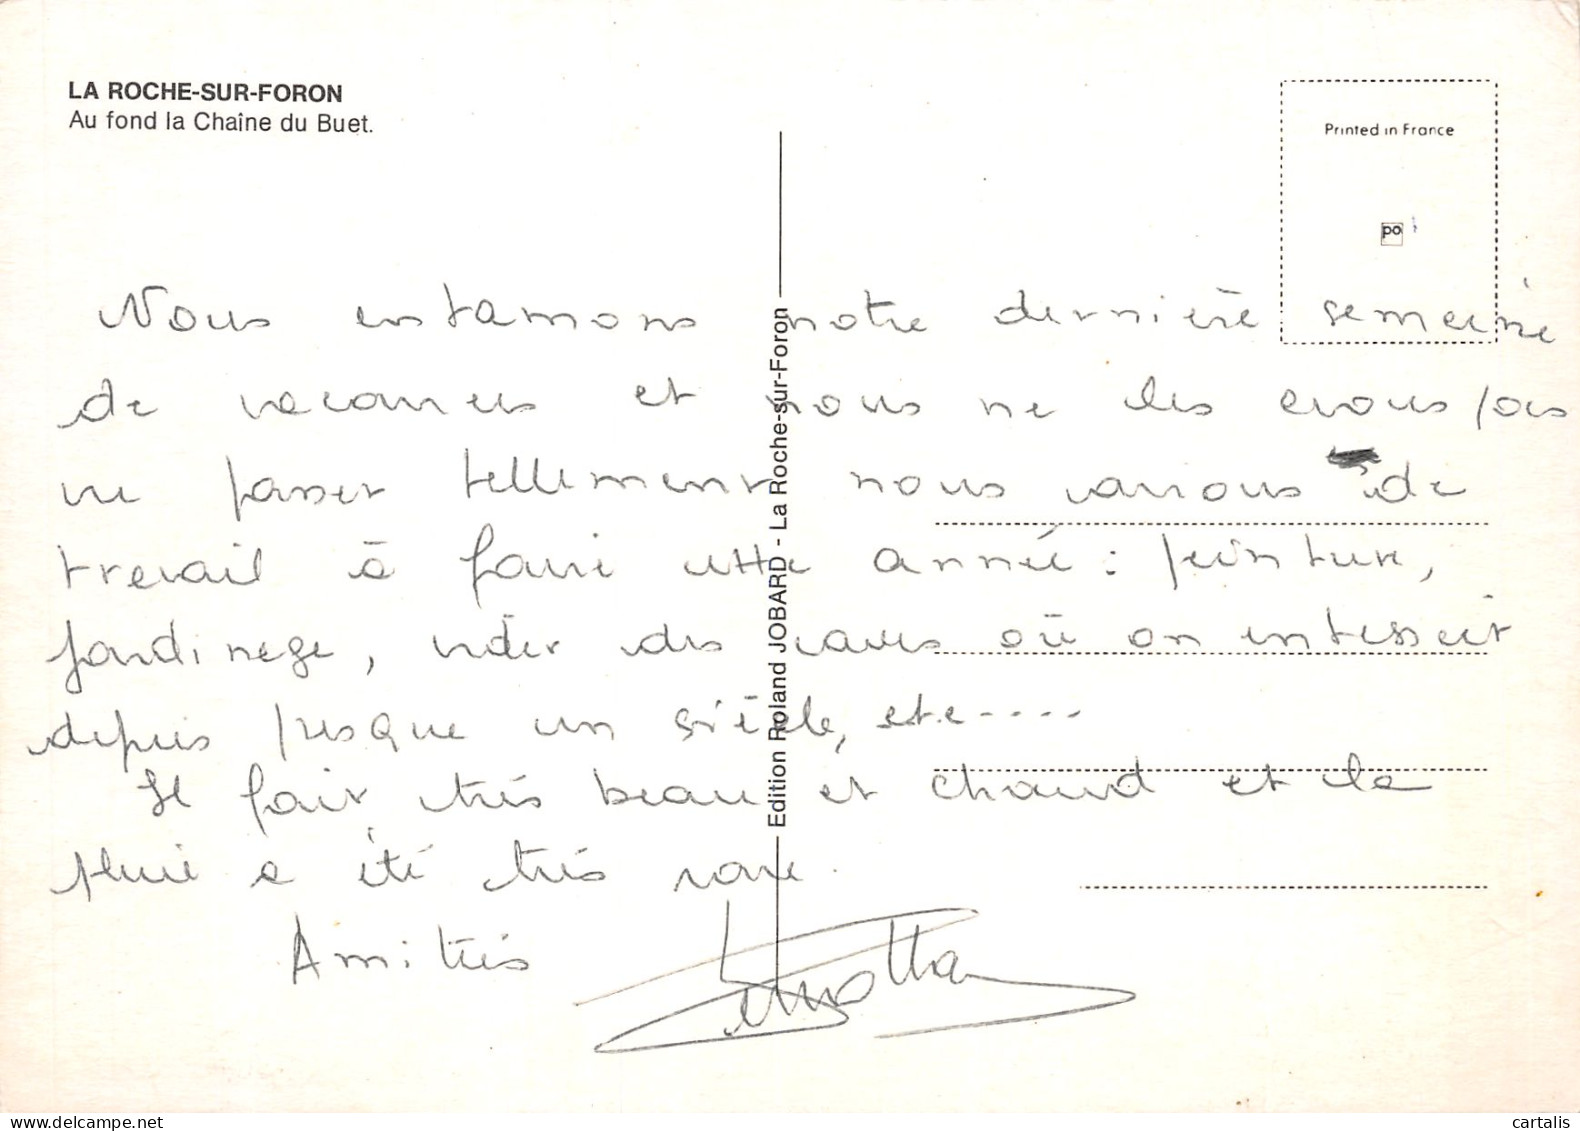 LA ROCHE-SUR-FORON
Au fond la Chaîne du Buet.
Printed in France
Nous entamons notre dernière semaine
de vacances et nous ne les avons pas
vu passer tellement nous avons de
travail à faire cette année : peinture,
jardinage, vider des caves où on entassait
depuis presque un siècle, etc----
Il fait très beau et chaud et la
pluie a été très rare.
Amitiés
Edition Roland JOBARD - La Roche-sur-Foron
cartalis
www.delcampe.net